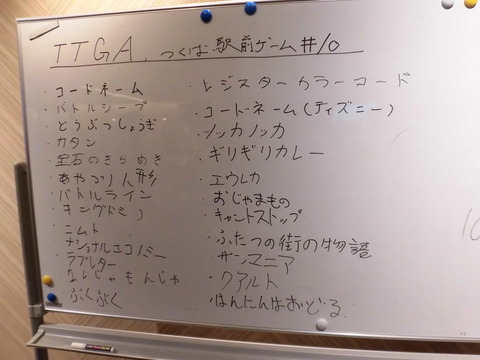 TTGA. つくば駅前ゲーム#10
・コードネーム
・バトルシープ
・どうぶつしょうぎ
・カタン
・宝石のきらめき
・あやつり人形
・バトルライン
・キングドミノ
・ニムト
・ナショナルエコノミー
・ラブレター
・なんじゃもんじゃ
・ぶくぶく
・レジスターカラーコード
・コードネーム(ディズニー)
・ノッカノッカ
・ギリギリカレー
・エウレカ
・おじゃまもの
・キャントストップ
・ふたつの街の物語
・ザンマニア
・クアルト
・はんにんはおどる
10